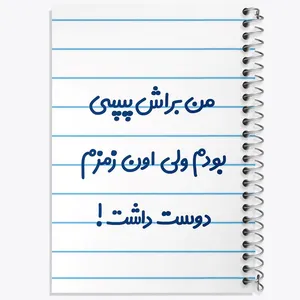 من براش پپسی
بودم ولی اون زمزم
دوست داشت!